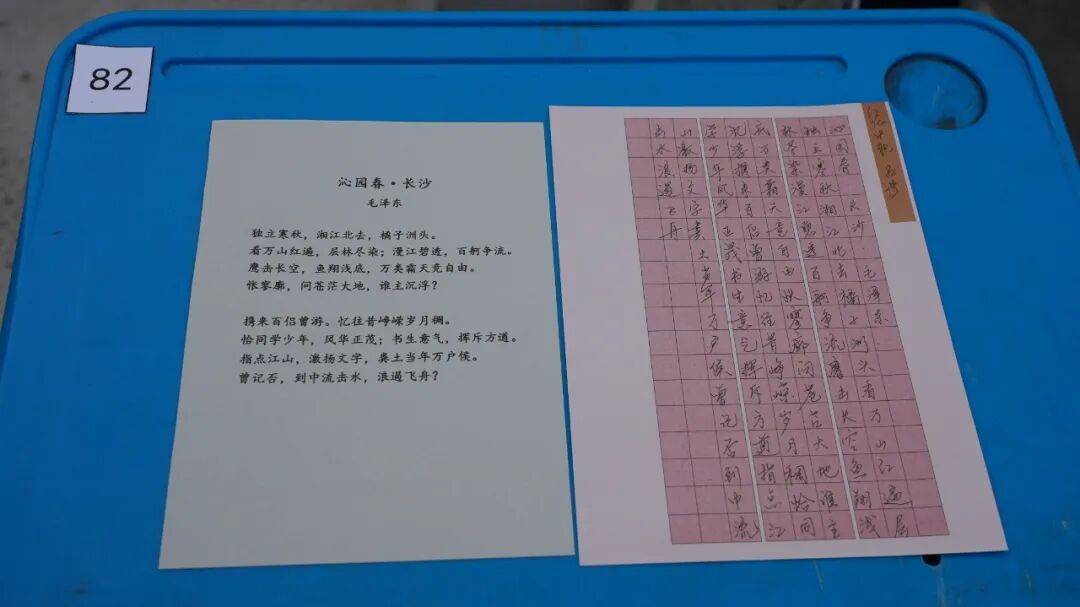 82
沁园春·长沙
毛泽东
独立寒秋，湘江北去，橘子洲头。
看万山红遍，层林尽染；漫江碧透，百舸争流。
鹰击长空，鱼翔浅底，万类霜天竞自由。
怅寥廓，问苍茫大地，谁主沉浮？
携来百侣曾游。忆往昔峥嵘岁月稠。
恰同学少年，风华正茂；书生意气，挥斥方遒。
指点江山，激扬文字，粪土当年万户侯。
曾记否，到中流击水，浪遏飞舟？
沁园春 长沙 毛泽东
独立寒秋湘江北去橘子洲头看万山红遍层
林尽染漫江碧透百舸争流鹰击长空鱼翔浅
底万类霜天竞自由怅寥廓问苍茫大地谁主
沉浮携来百侣曾游忆往昔峥嵘岁月稠恰同
学少年风华正茂书生意气挥斥方遒指点江
山激扬文字粪土当年万户侯曾记否到中流
击水浪遏飞舟